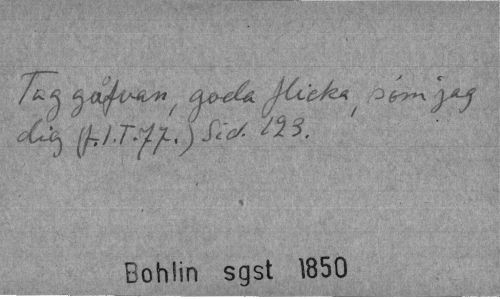 Tag gåfvan, goda flicka, som jag
dig (f.1.T.77.) Sid. 123.
Bohlin sgst 1850